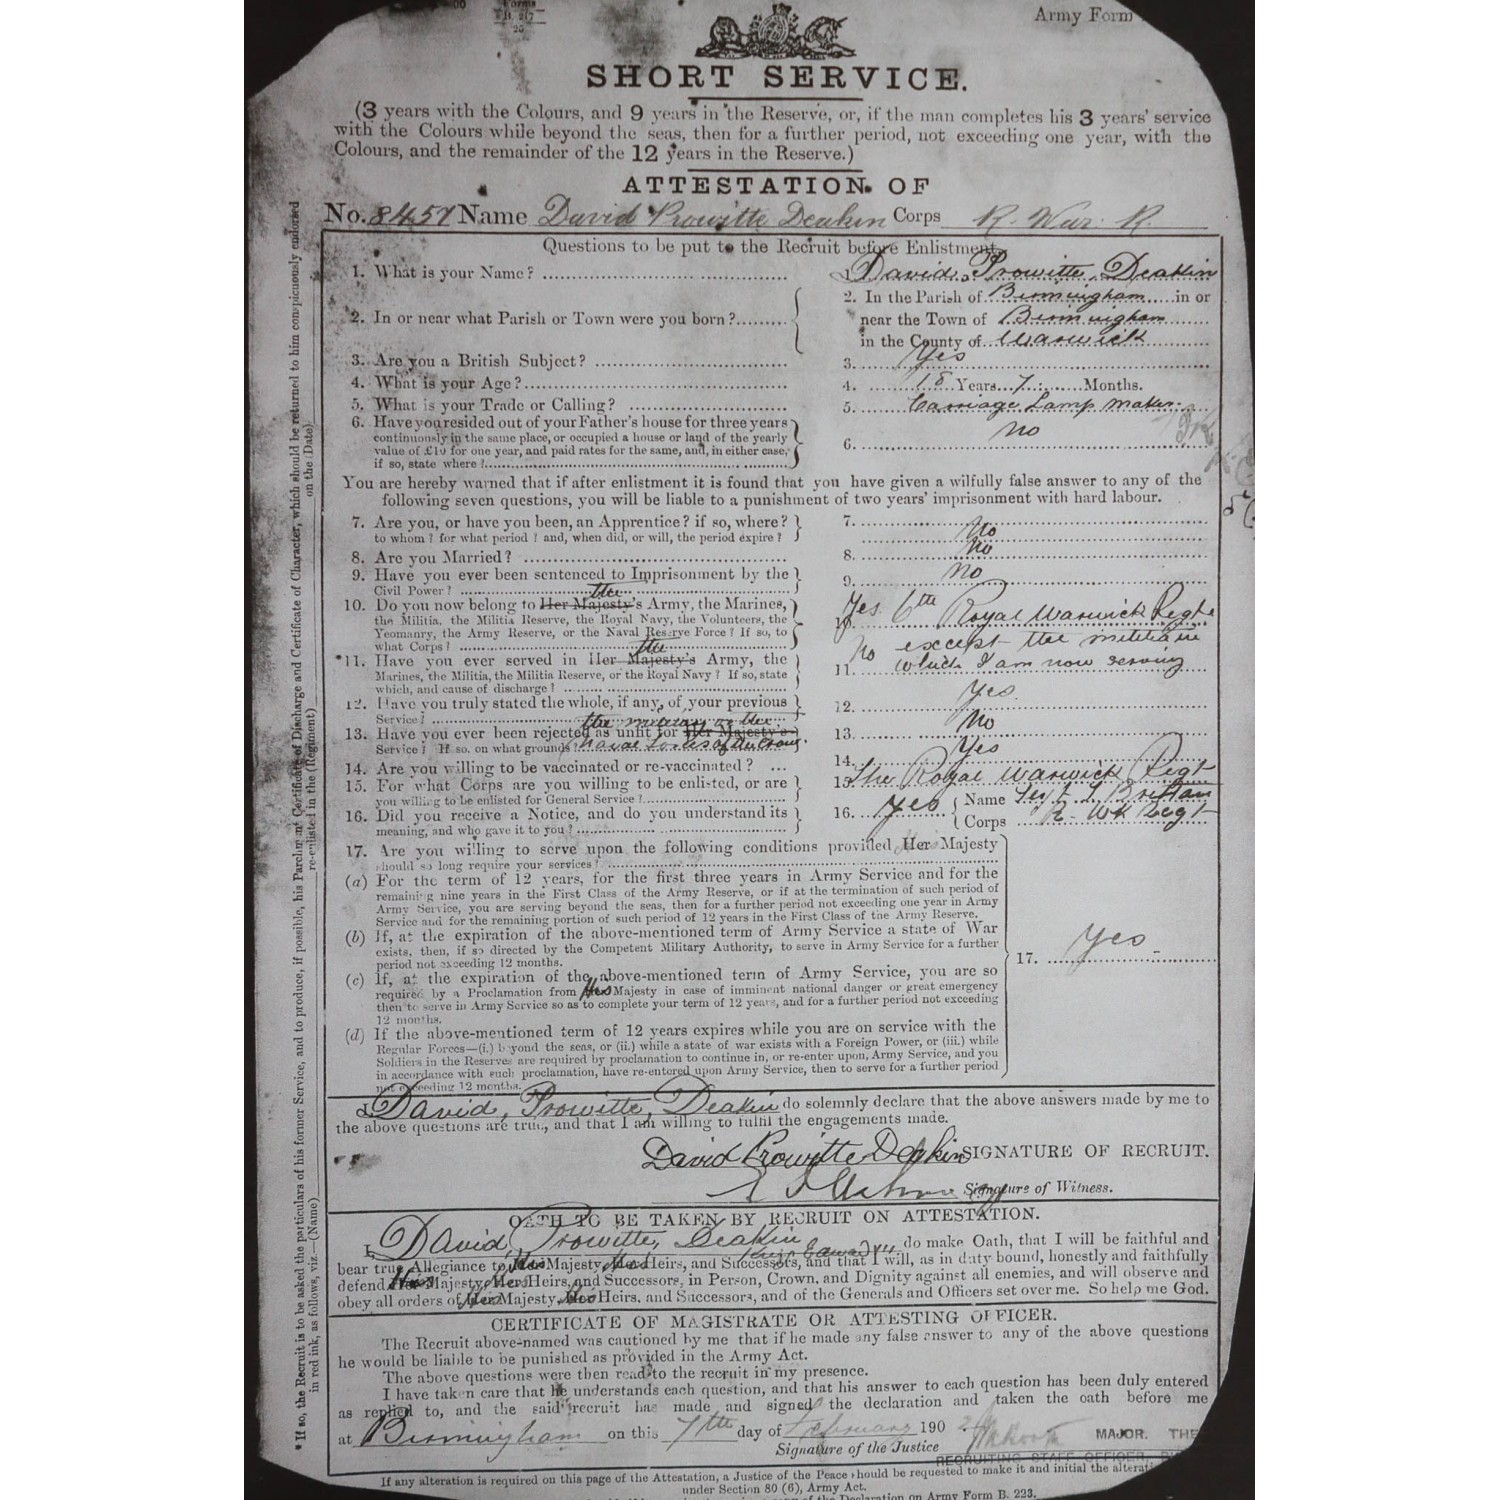 Forms
Army Form
SHORT SERVICE.
(3 years with the Colours, and 9 years in the Reserve, or, if the man completes his 3 years' service
with the Colours while beyond the seas, then for a further period, not exceeding one year, with the
Colours, and the remainder of the 12 years in the Reserve.)
ATTESTATION OF
No. 8457 Name David Prowitte Deakin Corps R. War. R.
Questions to be put to the Recruit before Enlistment.
1. What is your Name? 1. David Prowitte Deakin
2. In or near what Parish or Town were you born? 2. In the Parish of Birmingham in or
near the Town of Birmingham
in the County of Warwick
3. Are you a British Subject? 3. Yes
4. What is your Age? 4. 18 Years 7 Months.
5. What is your Trade or Calling? 5. Carriage Lamp Maker
6. Have you resided out of your Father's house for three years
continuously in the same place, or occupied a house or land of the yearly
value of £10 for one year, and paid rates for the same, and, in either case,
if so, state where? 6. No
You are hereby warned that if after enlistment it is found that you have given a wilfully false answer to any of the
following seven questions, you will be liable to a punishment of two years' imprisonment with hard labour.
7. Are you, or have you been, an Apprentice? if so, where?
to whom? for what period? and, when did, or will, the period expire? 7. No
8. Are you Married? 8. No
9. Have you ever been sentenced to Imprisonment by the
Civil Power? 9. No
the
10. Do you now belong to Her Majesty's Army, the Marines,
the Militia, the Militia Reserve, the Royal Navy, the Volunteers, the
Yeomanry, the Army Reserve, or the Naval Reserve Force? If so, to
what Corps? 10. Yes 6th Royal Warwick Regt
the
*11. Have you ever served in Her Majesty's Army, the
Marines, the Militia, the Militia Reserve, or the Royal Navy? If so, state
which, and cause of discharge? 11. No except the militia in
which I am now serving
12. Have you truly stated the whole, if any, of your previous
Service? 12. Yes
the military or the
13. Have you ever been rejected as unfit for Her Majesty's
Service? If so, on what grounds? naval forces of the Crown 13. No
14. Are you willing to be vaccinated or re-vaccinated? ... 14. Yes
15. For what Corps are you willing to be enlisted, or are
you willing to be enlisted for General Service? 15. The Royal Warwick Regt
16. Did you receive a Notice, and do you understand its
meaning, and who gave it to you? 16. Yes Name Sergt
Corps R. Wk Regt
17. Are you willing to serve upon the following conditions provided Her Majesty
should so long require your services?
(a) For the term of 12 years, for the first three years in Army Service and for the
remaining nine years in the First Class of the Army Reserve, or if at the termination of such period of
Army Service, you are serving beyond the seas, then for a further period not exceeding one year in Army
Service and for the remaining portion of such period of 12 years in the First Class of the Army Reserve.
(b) If, at the expiration of the above-mentioned term of Army Service a state of War
exists, then, if so directed by the Competent Military Authority, to serve in Army Service for a further
period not exceeding 12 months.
17. Yes
(c) If, at the expiration of the above-mentioned term of Army Service, you are so
required by a Proclamation from His Majesty in case of imminent national danger or great emergency
then to serve in Army Service so as to complete your term of 12 years, and for a further period not exceeding
12 months.
(d) If the above-mentioned term of 12 years expires while you are on service with the
Regular Forces—(i.) beyond the seas, or (ii.) while a state of war exists with a Foreign Power, or (iii.) while
Soldiers in the Reserves are required by proclamation to continue in, or re-enter upon, Army Service, and you
in accordance with such proclamation, have re-entered upon Army Service, then to serve for a further period
not exceeding 12 months.
I, David Prowitte Deakin do solemnly declare that the above answers made by me to
the above questions are true, and that I am willing to fulfil the engagements made.
David Prowitte Deakin SIGNATURE OF RECRUIT.
Signature of Witness.
OATH TO BE TAKEN BY RECRUIT ON ATTESTATION.
I, David Prowitte Deakin do make Oath, that I will be faithful and
King Edward VII
bear true Allegiance to His Majesty, His Heirs, and Successors, and that I will, as in duty bound, honestly and faithfully
defend His Majesty, His Heirs, and Successors, in Person, Crown, and Dignity against all enemies, and will observe and
obey all orders of His Majesty, His Heirs, and Successors, and of the Generals and Officers set over me. So help me God.
CERTIFICATE OF MAGISTRATE OR ATTESTING OFFICER.
The Recruit above-named was cautioned by me that if he made any false answer to any of the above questions
he would be liable to be punished as provided in the Army Act.
The above questions were then read to the recruit in my presence.
I have taken care that he understands each question, and that his answer to each question has been duly entered
as replied to, and the said recruit has made and signed the declaration and taken the oath before me
at Birmingham on this 7th day of February 190
Signature of the Justice MAJOR. THE
RECRUITING STAFF OFFICER,
If any alteration is required on this page of the Attestation, a Justice of the Peace should be requested to make it and initial the alterati
under Section 80 (6), Army Act.
of the Declaration on Army Form B. 223.
* If so, the Recruit is to be asked the particulars of his former Service, and to produce, if possible, his Parchment Certificate of Discharge and Certificate of Character, which should be returned to him conspicuously endorsed
in red ink, as follows, viz.—(Name) re-enlisted in the (Regiment) on the (Date)